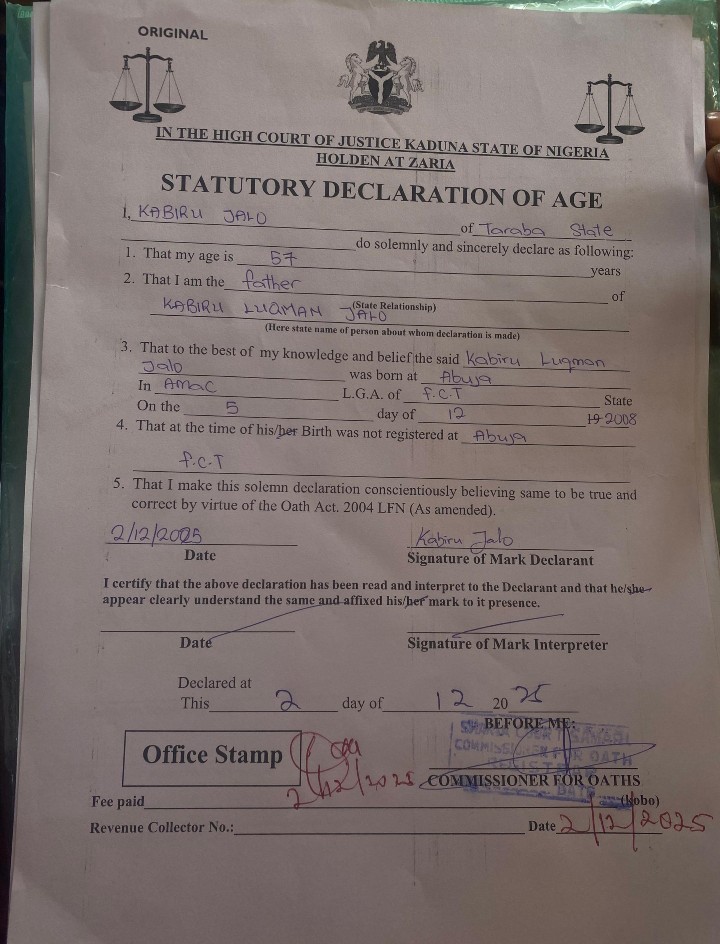 ORIGINAL
IN THE HIGH COURT OF JUSTICE KADUNA STATE OF NIGERIA
HOLDEN AT ZARIA
STATUTORY DECLARATION OF AGE
I, KABIRU JALO of Taraba State
do solemnly and sincerely declare as following:
1. That my age is 57 years
2. That I am the father of
(State Relationship)
KABIRU LUQMAN JALO
(Here state name of person about whom declaration is made)
3. That to the best of my knowledge and belief the said Kabiru Luqman
Jalo was born at Abuja
In Amac L.G.A. of F.C.T State
On the 5 day of 12 19 2008
4. That at the time of his/her Birth was not registered at Abuja
F.C.T
5. That I make this solemn declaration conscientiously believing same to be true and
correct by virtue of the Oath Act. 2004 LFN (As amended).
2/12/2025 Kabiru Jalo
Date Signature of Mark Declarant
I certify that the above declaration has been read and interpret to the Declarant and that he/she
appear clearly understand the same and affixed his/her mark to it presence.
Date Signature of Mark Interpreter
Declared at
This 2 day of 12 20 25
BEFORE ME:
COMMISSIONER FOR OATH
Office Stamp
2/12/2025
COMMISSIONER FOR OATHS
DATE
Fee paid (kobo)
Revenue Collector No.: Date 2/12/2025